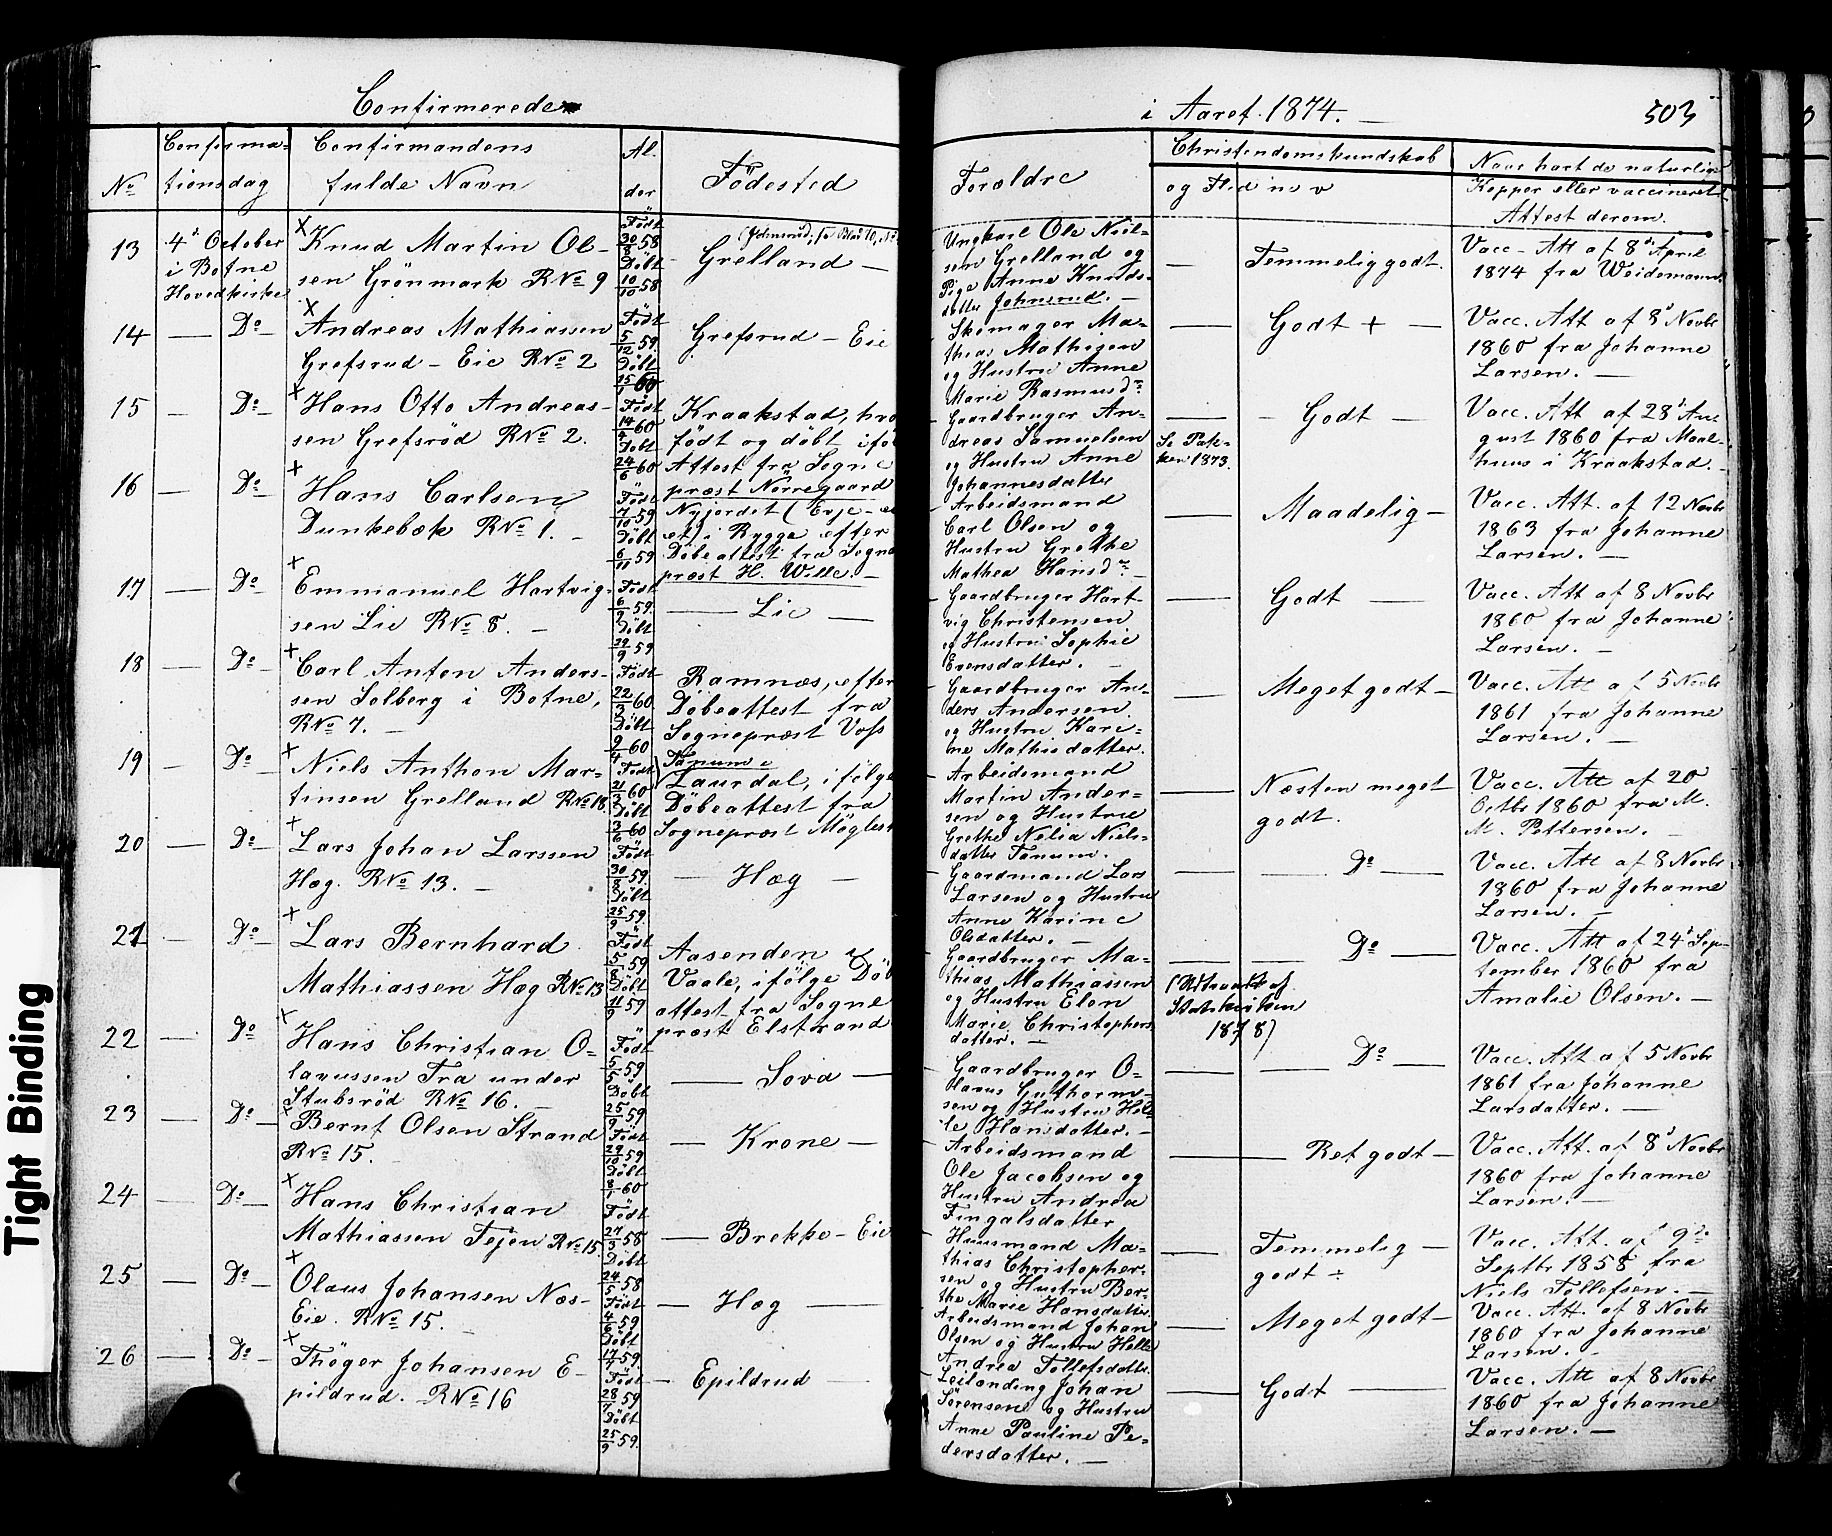 Confirmerede
i Aaret 1874.
503
Nº
Confirma-
tionsdag
Confirmandens
fulde Navn
Al.
der
Födested
Foreldre
Christendomskundskab
og Flid
Kopper eller vaccineret
Attest derom.
13
4d October
i Botne
Hovedkirke
Knud Martin Ol-
sen Grönmark RNº 9
Födt
30/8 58
Döbt
10/10 58
Grelland
Ungkarl Ole Niel-
sen Grelland og
Pige Anne Knuds-
datter Johnsrud.
Temmelig godt.
Vacc. Att af 8d April
1874 fra Weidemann
14
Dº
Andreas Mathiassen
Grefsrud - Eie RNº 2
Födt
5/12 59
Döbt
15/1 60
Grefsrud - Eie
Skomager Ma-
thias Mathisen
og Hustru Anne
Marie Rasmusdr
Godt +
Vacc. Att af 8d Novbr
1860 fra Johanne
Larsen.
15
Dº
Hans Otto Andreas-
sen Grefsröd RNº 2.
Födt
14/4 60
Döbt
24/6 60
Kraakstad,
födt og döbt
Attest fra Sogne
præst Nörregaard
Gaardbruger An-
dreas Samuelsen
og Hustru Anne
Johannesdatter
Se Pak-
ken 1873.
Godt
Vacc. Att af 28d Au-
gust 1860 fra Maal-
huus i Kraakstad.
16
Dº
Hans Carlsen
Dunkebæk RNº 1.
Födt
7/10 59
Döbt
6/11 59
Nyjordet (Evje-
et) i Rygge efter
Döbeattest fra Sogne
præst H. Wille.
Arbeidsmand
Carl Olsen og
Hustru Grethe
Mathea Hansdr
Maadelig
Vacc. Att. af 12 Novbr
1863 fra Johanne
Larsen.
17
Dº
Emmanuel Hartvig-
sen Lie RNº 8.
Födt
59
Döbt
59
Lie
Gaardbruger Hart-
vig Christensen
og Hustru Sophie
Evensdatter.
Godt
Vacc. Att af 8 Novbr
1860 fra Johanne
Larsen.
18
Dº
Carl Anton Anders-
sen Solberg i Botne,
RNº 7.
Födt
22/3 60
Döbt
9/4 60
Ramnæs, efter
Döbeattest fra
Sognepræst Voss
Gaardbruger An-
ders Andersen
og Hustru Kari-
ne Mathisdatter.
Meget godt
Vacc. Att af 5 Novbr
1861 fra Johanne
Larsen.
19
Dº
Niels Anthon Mar-
tinsen Grelland RNº 18.
Födt
60
Döbt
3/6 60
Tanum i
Laurdal, ifölge
Döbeattest fra
Sognepræst
Arbeidsmand
Martin Ander-
sen og Hustrue
Grethe Nelia Niels-
datter Tanum.
Næsten meget
godt.
Vacc. Att af 20
Octbr 1860 fra M.
M. Pettersen.
20
Dº
Lars Johan Larssen
Hæg. RNº 13.
Födt
30/8 59
Döbt
25/9 59
Hæg
Gaardmand Lars
Larsen og Hustru
Anne Karine
Olsdatter.
Dº
Vacc. Att af 8 Novbr
1860 fra Johanne
Larsen.
21
Dº
Lars Bernhard
Mathiassen Hæg RNº 13
Födt
5/8 59
Döbt
11/9 59
Aasenden i
Vaale, ifölge Döb
attest fra Sogne
præst Elstrand
Gaardbruger Ma-
thias Mathiassen
og Hustru Elen
Marie Christophers
datter.
(Udtraadt af
Statskirken
1878)
Dº
Vacc. Att af 24d Sep-
tember 1860 fra
Amalie Olsen.
22
Dº
Hans Christian O-
lavussen Tra under
Stubsröd RNº 16.
Födt
5/5 59
Döbt
25/9 59
Sova
Gaardbruger O-
lavus Guthorm-
sen og Hustru Hel-
le Hansdatter.
Dº
Vacc. Att af 5 Novbr
1861 fra Johanne
Larsdatter.
23
Dº
Bernt Olsen Strand
RNº 15.
Födt
29/10 59
Döbt
8/1 60
Krone
Arbeidsmand
Ole Jacobsen og
Hustru Andrea
Fingalsdatter
Ret godt
Vacc. Att. af 8d Novbr
1860 fra Johanne
Larsen.
24
Dº
Hans Christian
Mathiassen Tejen RNº 15.
Födt
27/3 58
Döbt
24/5 58
Brekke - Eie
Huusmand Ma-
thias Christopher-
sen og Hustru Ber-
the Marie Hansdatter.
Temmelig
godt ÷
Vacc. Att. af 9de
Septbr 1858 fra
Niels Tollefsen.
25
Dº
Olaus Johansen Næs-
Eie. RNº 15.
Födt
4/6 59
Döbt
17/7 59.
Hæg
Arbeidsmand Johan
Olsen og Hustru Helle
Andrea Tollefsdatter
Meget godt
Vacc. Att. af 8 Novbr
1860 fra Johanne
Larsen.
26
Dº
Thöger Johansen E-
pildrud. RNº 16
Födt
28/7 59
Döbt
25/9 59.
Epildrud
Leilænding Johan
Sörensen og Hustru
Anne Pauline Pe-
dersdatter.
Godt
Vacc. Att af 8 Novbr
1860 fra Johanne
Larsen.
Tight Binding